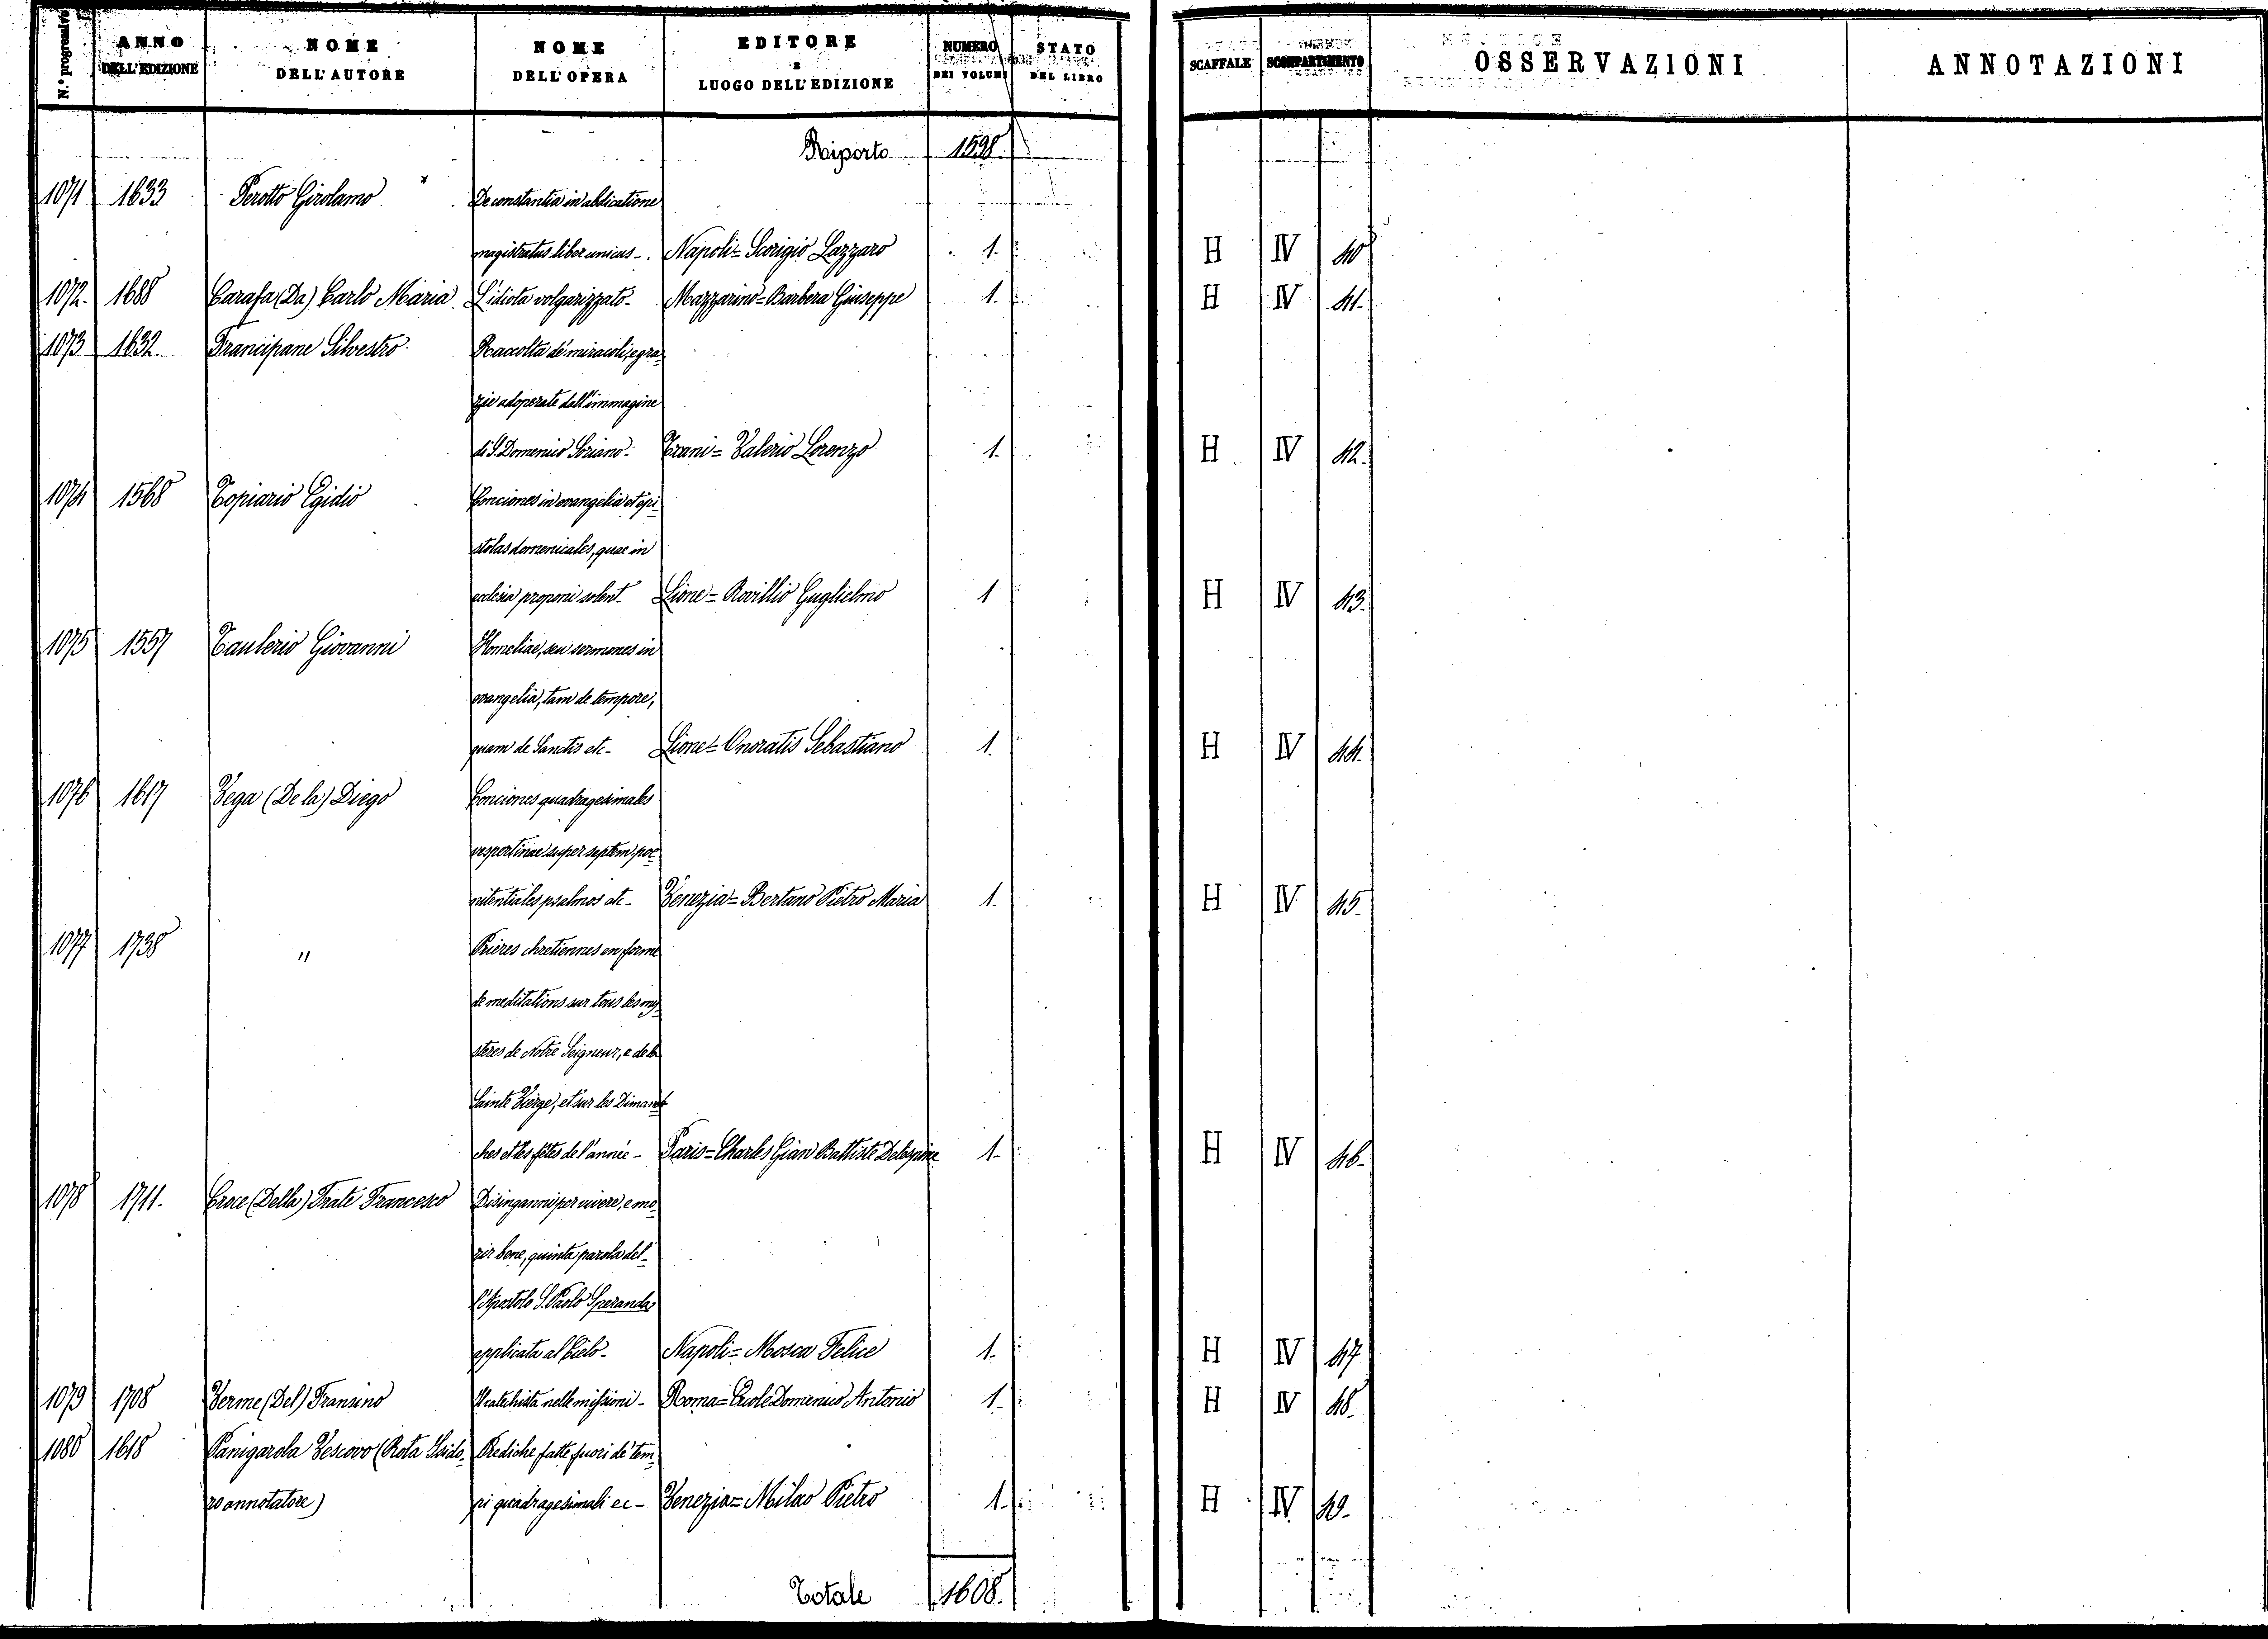 N.º progressivo | ANNO DELL'EDIZIONE | NOME DELL'AUTORE | NOME DELL'OPERA | EDITORE E LUOGO DELL'EDIZIONE | NUMERO DEI VOLUMI | STATO DEL LIBRO | SCAFFALE | SCOMPARTIMENTO | OSSERVAZIONI | ANNOTAZIONI
Riporto 1598
1071 1633 Perotto Girolamo De constantia in abdicatione
magistratus liber unicus - Napoli = Scorigio Lazzaro 1. H IV 40
1072. 1688 Carafa (Da) Carlo Maria L'idiota volgarizzato - Mazzarino = Barbera Giuseppe 1. H IV 41.
1073 1632. Francipane Silvestro Raccolta de' miracoli, e gra-
zie adoperate dall'immagine
di S. Domenico Soriano - Trani = Valerio Lorenzo 1. H IV 42.
1074 1568 Topiario Egidio Conciones in evangelia et epi-
stolas domenicales, quae in
ecclesia proponi solent - Lione = Rovillio Guglielmo 1 H IV 43.
1075 1557 Taulerio Giovanni Homeliae, seu sermones in
evangelia, tam de tempore,
quam de Sanctis etc - Lione = Onoratis Sebastiano 1. H IV 44.
1076 1617 Vega (De la) Diego Conciones quadragesimales
vespertinae super septem poe-
nitentiales psalmos etc - Venezia = Bertano Pietro Maria 1. H IV 45.
1077 1738 " Prieres chretiennes en forme
de meditations sur tous les my-
steres de Notre Seigneur, e de la
Sainte Vierge, et sur les Diman-
ches et les fêtes de l'année - Paris = Charles Gian Battiste Delespine 1. H IV 46.
1078 1711. Croce (Della) Frate Francesco Disinganni per vivere, e mo-
rir bene, quinta parola del-
l'Apostolo S. Paolo Speranda
applicata al Cielo - Napoli = Mosca Felice 1. H IV 47
1079 1708 Verme (Del) Fransino Il catechista nelle missioni - Roma = Ercole Domenico Antonio 1. H IV 48.
1080 1618 Panigarola Vescovo (Rota Isido- Prediche fatte fuori de' tem-
ro annotatore) pi quadragesimali ec - Venezia = Milao Pietro 1. H IV 49.
Totale 1608.